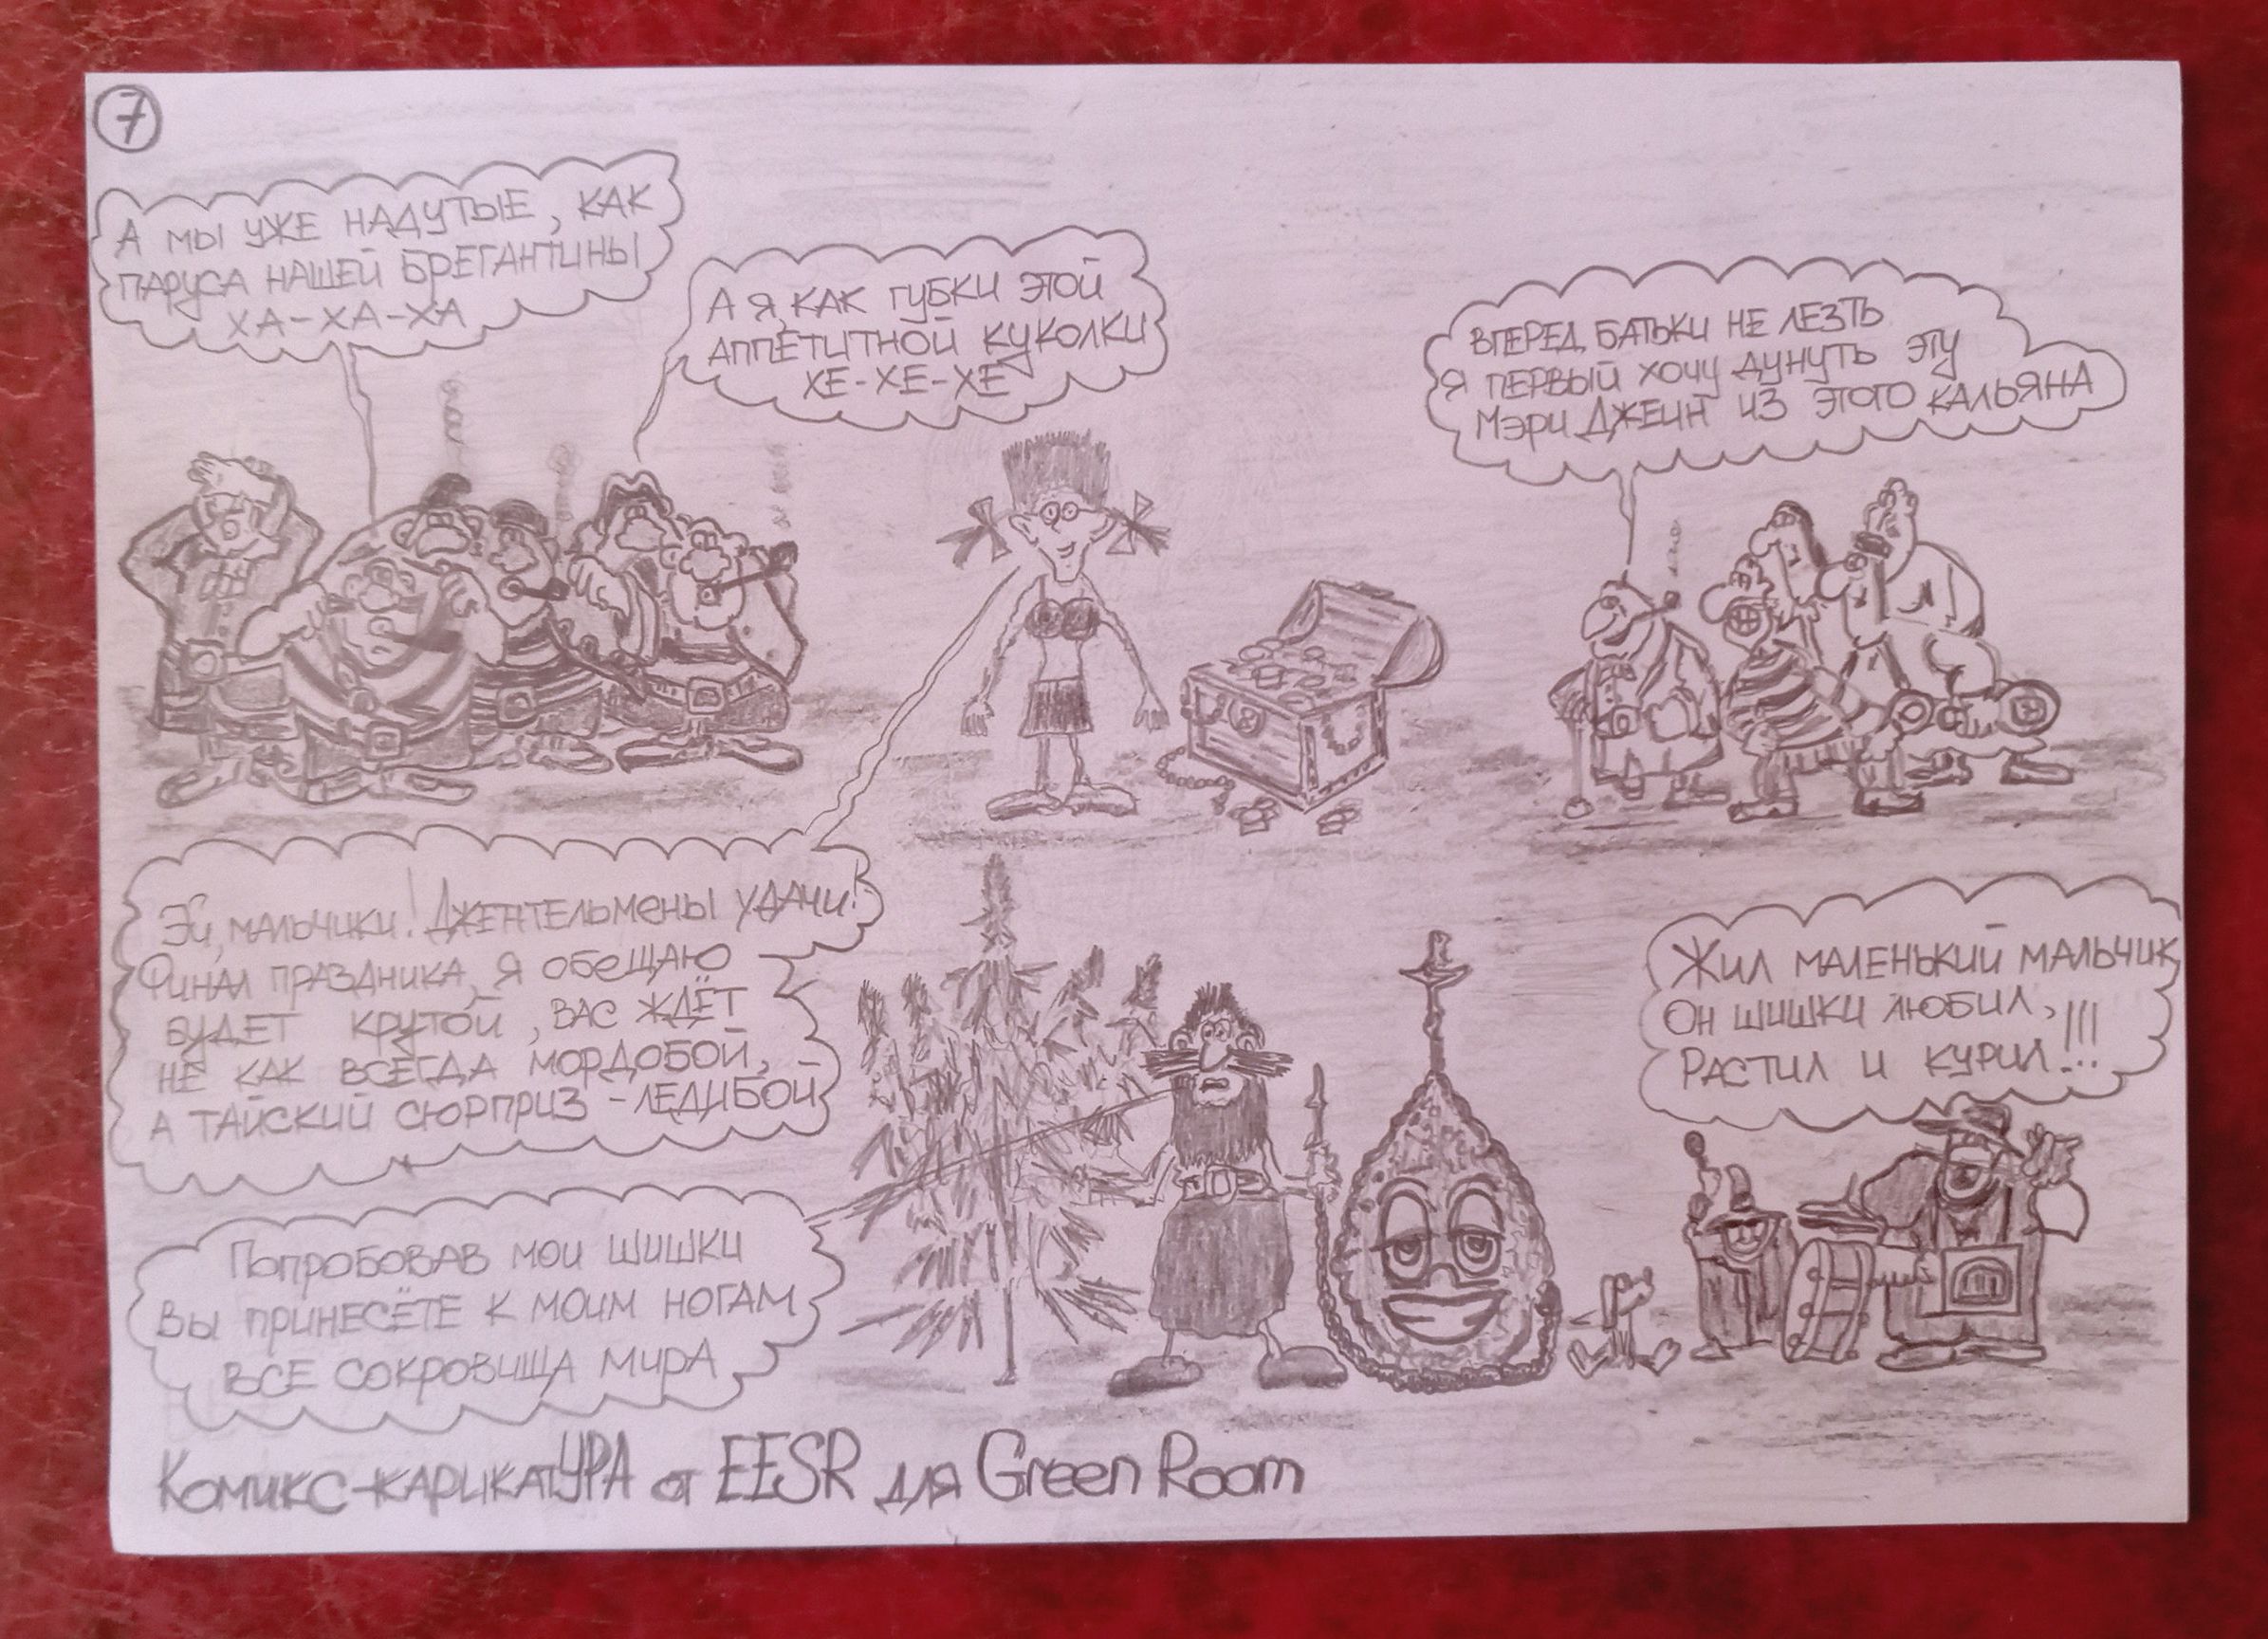 7
А МЫ УЖЕ НАДУТЫЕ, КАК
ПАРУСА НАШЕЙ БРЕГАНТИНЫ
ХА-ХА-ХА
А Я, КАК ГУБКИ ЭТОЙ
АППЕТИТНОЙ КУКОЛКИ
ХЕ-ХЕ-ХЕ
ВПЕРЕД БАТЬКИ НЕ ЛЕЗТЬ
Я ПЕРВЫЙ ХОЧУ ДУНУТЬ ЭТУ
МЭРИ ДЖЕИН ИЗ ЭТОГО КАЛЬЯНА
ЭЙ, МАЛЬЧИКИ! ДЖЕНТЕЛЬМЕНЫ УДАЧИ!
ФИНАЛ ПРАЗДНИКА, Я ОБЕЩАЮ
БУДЕТ КРУТОЙ, ВАС ЖДЁТ
НЕ КАК ВСЕГДА МОРДОБОЙ,
А ТАЙСКИЙ СЮРПРИЗ - ЛЕДИБОЙ
ЖИЛ МАЛЕНЬКИЙ МАЛЬЧИК
ОН ШИШКИ ЛЮБИЛ,
РАСТИЛ И КУРИЛ!!!
ПОПРОБОВАВ МОИ ШИШКИ
ВЫ ПРИНЕСЁТЕ К МОИМ НОГАМ
ВСЕ СОКРОВИЩА МИРА
КОМИКС-КАРИКАТУРА от EESR для Green Room